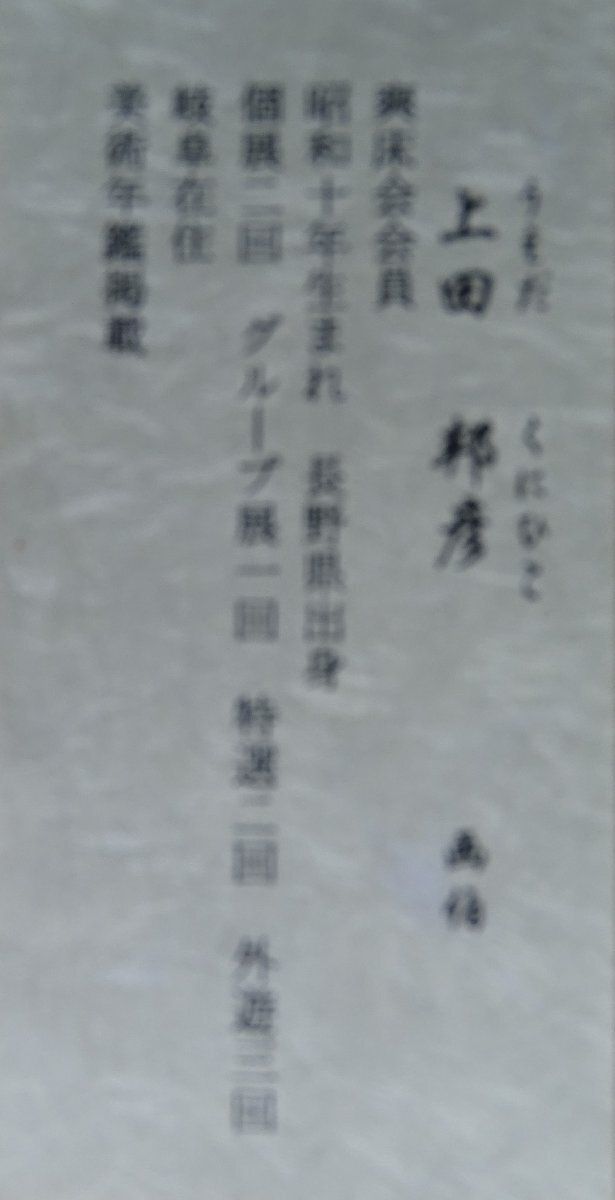 うえだ くにひこ
上田 邦彦 画伯
爽床会会員
昭和十年生まれ 長野県出身
個展二回 グループ展一回 特選二回 外遊三回
岐阜在住
美術年鑑掲載